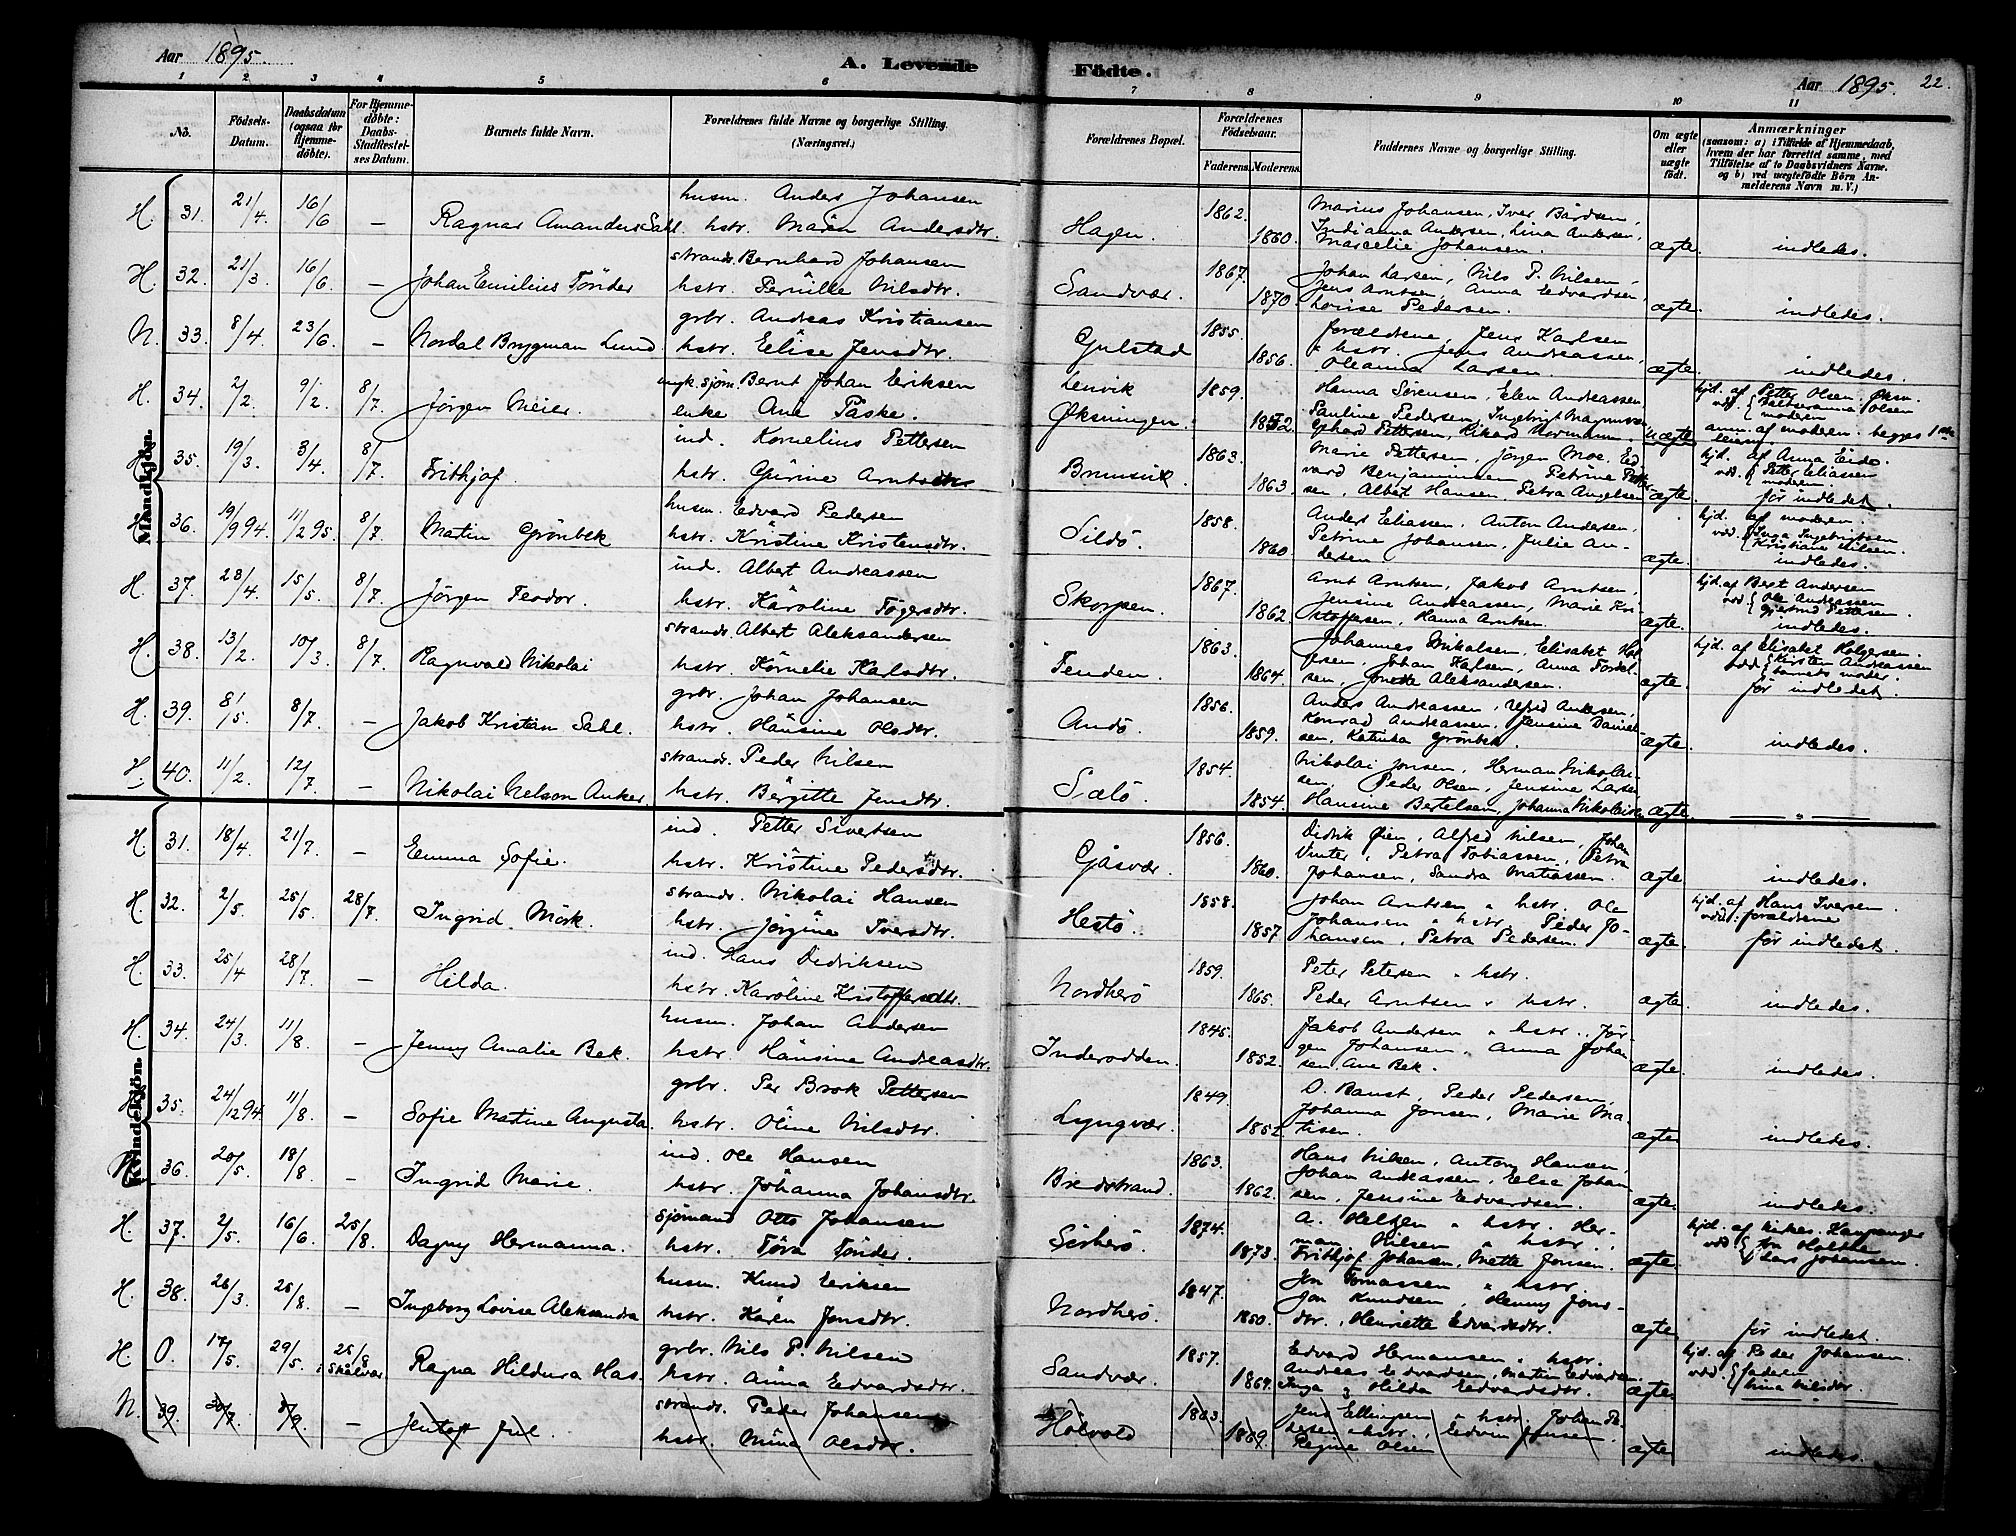 Aar 1895.
A. Levende Födte.
Aar 1895. 22.
1 2 3 4 5 6 7 8 9 10 11
No. Födsels-Datum. Daabsdatum (ogsaa for Hjemmedöbte). For Hjemmedöbte: Daabs-Stadfæstelses Datum. Barnets fulde Navn. Forældrenes fulde Navne og borgerlige Stilling. (Næringsvei.) Forældrenes Bopæl. Forældrenes Födselsaar. Faderens. Moderens. Faddernes Navne og borgerlige Stilling. Om ægte eller uægte födt. Anmærkninger (saasom: a) i Tilfælde af Hjemmedaab, hvem der har forrettet samme, med Tilföielse af to Daabsvidners Navne. og b) ved uægtefödte Börn Anmelderens Navn m. V.)
Mandkjön.
H. 31. 21/4. 16/6 — Ragnar Amandus Sahl. husm. Anders Johansen
hstr. Maren Andersdtr. Hagen. 1862. 1860. Marius Johansen, Iver Bårdsen,
Indianna Andersen, Lina Andersen,
Marcelie Johansen. ægte. indledes.
H. 32. 21/3. 16/6. — Johan Emilius Tönder strands. Bernhard Johansen
hstr. Pernille Nilsdtr. Sandvær. 1867. 1870 Johan Larsen, Nils P. Nilsen,
Jens Arntsen, Anna Edvardsen,
Lovise Pedersen. ægte. indledes.
N. 33. 8/4. 23/6. — Nordal Brygman Lund grbr. Andreas Kristiansen
hstr. Elise Jensdtr. Gulstad 1855. 1856. forældrene, Jens Karlsen
" hstr. Jens Andreassen,
Oleanna Larsen. ægte. indledes.
H. 34. 2/2. 9/2. 8/7 Jörgen Meier. ungk. sjöm. Bernt Johan Eriksen
enke Ane Påske. Lenvik
Öksningen. 1859. 1852. Hanna Sörensen, Elen Andreassen
Pauline Pedersen, Ingebrigt Magnussen
Gerhard Pettersen, Rikard Normann. uægte hjd. af Petter Olsen, Öksn.
vdd. Olsen
moderen
anm. af moderen. begges 1ste
leierm.
H. 35. 19/3. 3/4. 8/7. Frithjof. ind. Kornelius Pettersen
hstr. Gurine Arntsdtr Brunsvik. 1863. 1863. Marie Pettersen, Jörgen Moe, Ed
vard Benjaminsen Petrine Petter-
sen, Albert Hansen, Petra Angelsen ægte. hjd. af Anna Eide.
vdd. Petter Eliassen
moderen.
för indledet.
H. 36. 19/9 94. 11/2 95. 8/7. Martin Grönbek husm. Edvard Pedersen
hstr. Kristine Kristensdtr. Sildö. 1858. 1860. Anders Eliassen, Anton Andersen,
Petrine Johansen, Julie An-
dersen. ægte. hjd. af moderen.
vdd. Inga Ingebrigtsen
Kristiane Nilsen.
indledes.
H. 37. 23/4. 15/5. 8/7. Jörgen Teodor. ind. Albert Andreassen
hstr. Karoline Tögersdtr. Skorpen. 1867. 1862 Arnt Arntsen, Jakob Arntsen,
Jensine Andreassen, Marie Kri-
stoffersen, Hanna Arntsen. ægte. hjd. af Berit Andersen
vdd. Ole Andreassen
Gjertrud Pettersen.
indledes.
H. 38. 13/2. 10/3. 8/7 Ragnvald Nikolai strands. Albert Aleksandersen
hstr. Kornelie Karlsdtr. Tenden. 1863. 1864. Johannes Mikalsen, Elisabet Hol
gersen, Johan Karlsen, Anna Torkel-
sen, Jonette Aleksandersen. ægte. hjd. af Elisabet Holgersen.
vdd. Kirsten Andreassen
barnets moder.
för indledet.
H. 39. 8/5. 8/7. — Jakob Kristian Sahl. grbr. Johan Johansen
hstr. Hansine Olsdtr. Andö. 1856. 1859. Anders Andreassen, Alfred Andersen,
Konrad Andreassen, Jensine Daniel-
sen, Katinka Grönbek. ægte. indledes.
H. 40. 11/2. 12/7. — Nikolai Nelson Anker strands. Peder Nilsen
hstr. Bergitte Jensdtr. Sælö. 1854. 1854. Nikolai Jonsen, Herman Nikolai-
sen, Peder Olsen, Jensine Larsen
Hansine Bertelsen, Johanna Nikolaisen ægte. — " —
Kvindekjön.
H. 31. 18/4. 21/7. — Emma Sofie. ind. Petter Sivertsen
hstr. Kristine Pedersdtr. Gåsvær. 1856. 1860. Didrik Öien, Alfred Nilsen, Johan
Vinter, Petra Tobiassen, Petra
Johansen, Sandra Matiassen. ægte indledes.
H. 32. 2/5. 25/5. 28/7. Ingrid Mörk. strands. Nikolai Hansen
hstr. Jörgine Iversdtr. Hestö. 1858. 1857 Johan Arntsen " hstr. Ole
Johansen " hstr. Peder Jo-
hansen, Petra Pedersen. ægte. hjd. af Hans Iversen.
vdd. forældrene
för indledet.
H. 33. 25/4 28/7. — Hilda. ind. Hans Didriksen
hstr. Karoline Kristoffersdtr. Nordherö 1859. 1865. Peter Petersen " hstr.
Peder Arntsen " hstr. ægte. indledes.
H. 34. 24/3. 11/8. — Jenny Amalie Bek. husm. Johan Andersen
hstr. Hansine Andreasdtr. Inderodden. 1845. 1852. Jakob Andersen " hstr., Jör-
gen Johansen, Anna Johan
sen, Ane Bek. ægte. indledes.
H. 35. 24/12 94. 11/8. — Sofie Martine Augusta. grbr. Per Brok Pettersen
hstr. Oline Nilsdtr. Lyngvær. 1849. 1852. D. Banst, Peder Pedersen,
Johanna Jonsen, Marie Ma-
tisen. ægte indledes.
N. 36. 20/5. 18/8. — Ingrid Marie. ind. Ole Hansen
hstr. Johanna Johansdtr. Bredstrand. 1863. 1862. Hans Nilsen, Anton Hansen,
Johan Andreassen, Else Johan-
sen, Jensine Edvardsen. ægte. indledes.
H. 37. 2/5. 16/6. 25/8. Dagny Hermanna. sjömand Otto Johansen
hstr. Tora Tönder. Sörherö. 1874. 1873. A. Heltzen " hstr. Her-
man Nilsen " hstr.
Frithjof Johansen, Mette Jonsen. ægte. hjd. af kirkes.
vdd.
Lars Johansen.
H. 38. 26/3. 25/8. — Ingeborg Lovise Aleksandra husm. Knud Eriksen
hstr. Karen Jonsdtr. Nordherö. 1847. 1850. Jon Tomassen " hstr.
Jon Knudsen, Henny Jons-
dtr., Henriette Edvardsdtr. ægte för indledet.
H. 0. 17/5. 29/5. 25/8 i Skålvær Ragna Hildura Has. grbr. Nils P. Nilsen
hstr. Anna Edvardsdtr. Sandvær. 1857. 1864. Edvard Hermansen " hstr.
Andreas Edvardsen, Martin Edvardsen,
Inga og Hilda Edvardsdtr. ægte. hjd. af Peder Johansen.
vdd. faderen
Lina Nilsdtr.
N. 39. 30/7. 8/9. — Jentoft Jul. strands. Peder Johansen
hstr. Mina Olsdtr. Holvold 1863. 1869. Jens Ellingsen " hstr. Johan Pe-
dersen " hstr. Edvin Jensen,
Regine Olsen ægte indledes.